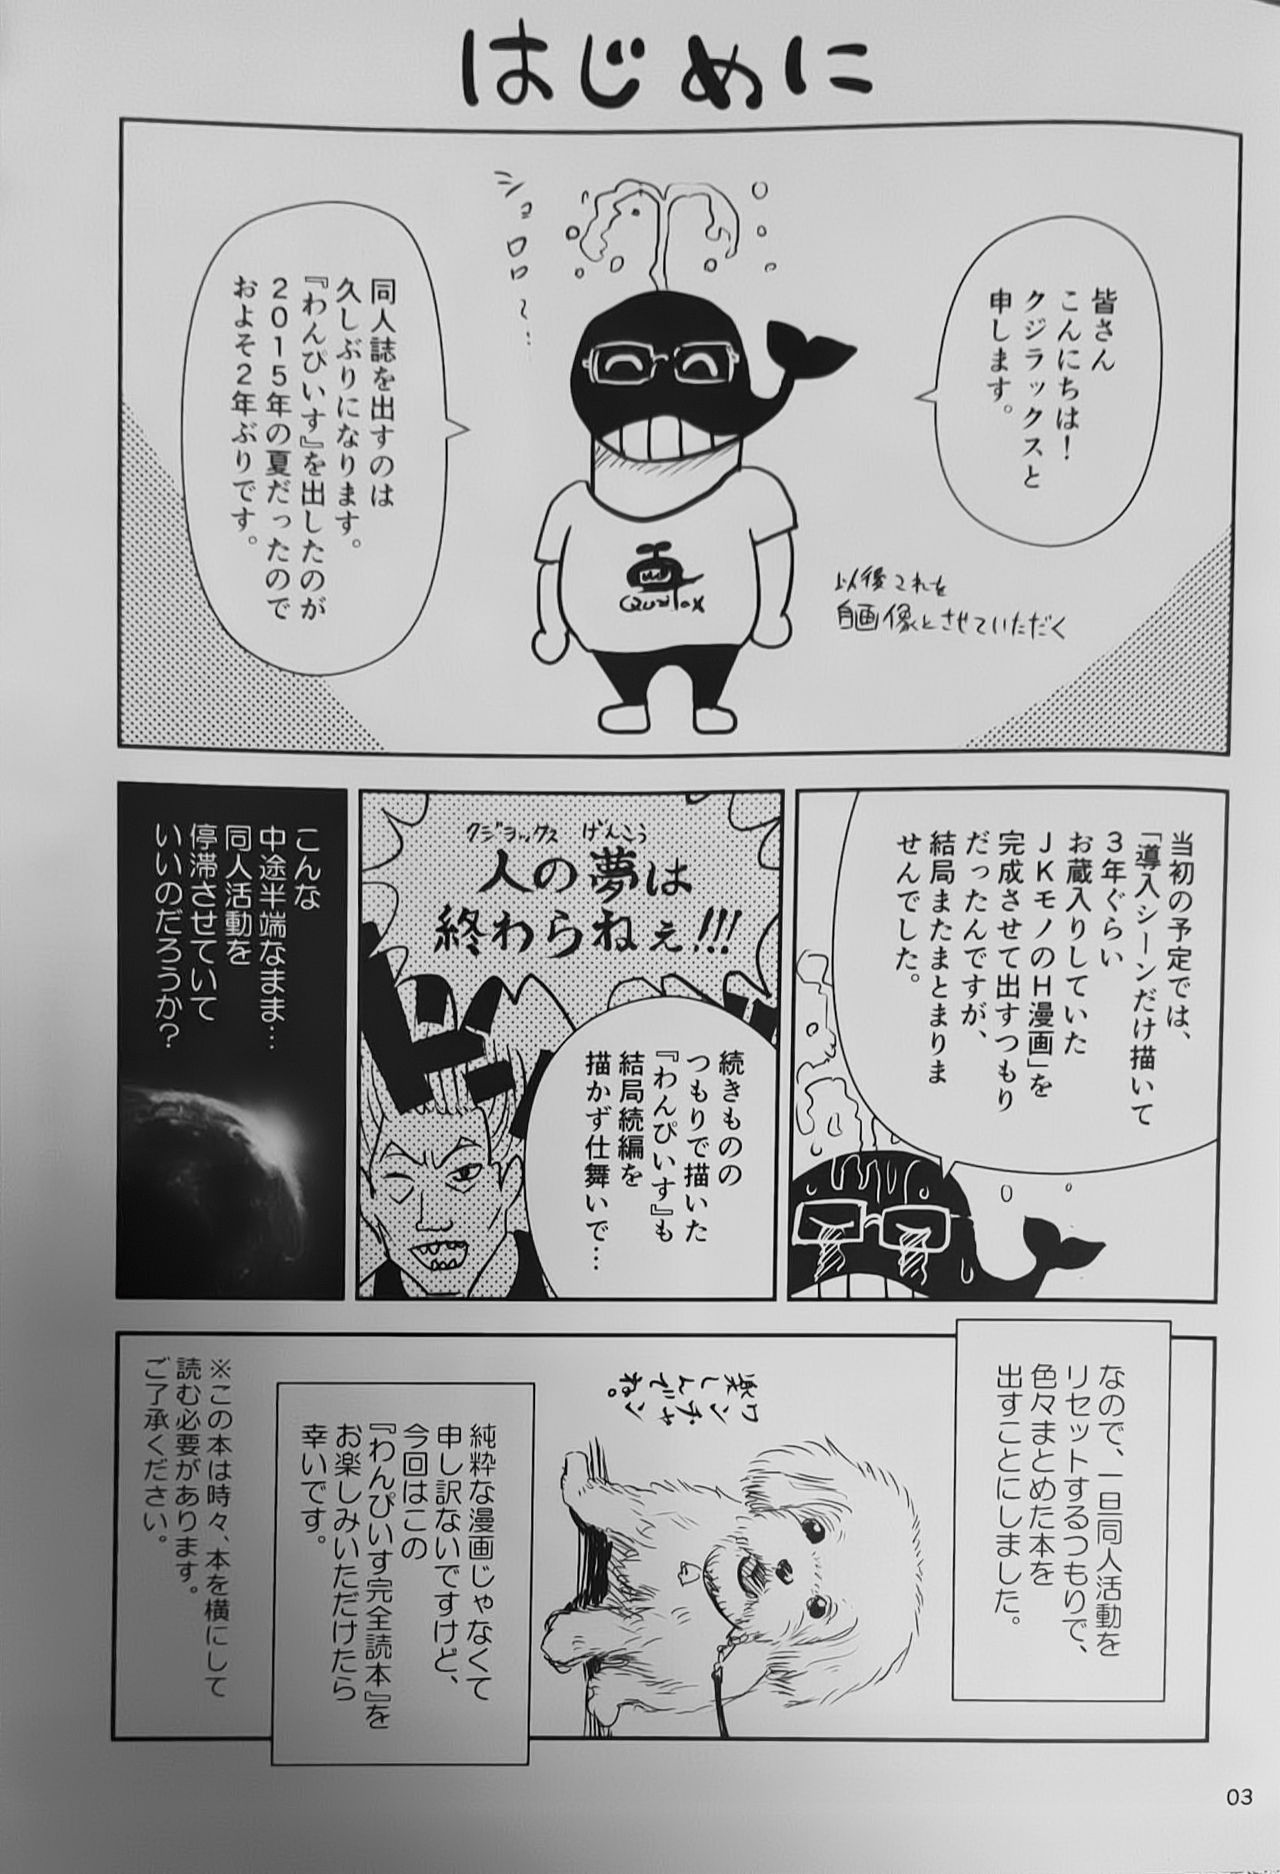 はじめに
皆さん
こんにちは！
クジラックスと
申します。
ショロロ～…
以後これを
自画像とさせていただく
同人誌を出すのは
久しぶりになります。
『わんぴいす』を出したのが
2015年の夏だったので
およそ2年ぶりです。
当初の予定では、
「導入シーンだけ描いて
3年ぐらい
お蔵入りしていた
JKモノのH漫画」を
完成させて出すつもり
だったんですが、
結局またまとまりま
せんでした。
クジラックス げんこう
人の夢は
終わらねェ!!!
ドン
続きものの
つもりで描いた
『わんぴいす』も
結局続編を
描かず仕舞いで…
こんな
中途半端なまま…
同人活動を
停滞させていて
いいのだろうか？
なので、一旦同人活動を
リセットするつもりで、
色々まとめた本を
出すことにしました。
ワンチャン
楽しんでね。
純粋な漫画じゃなくて
申し訳ないですけど、
今回はこの
『わんぴいす完全読本』を
お楽しみいただけたら
幸いです。
※この本は時々、本を横にして
読む必要があります。
ご了承ください。
03